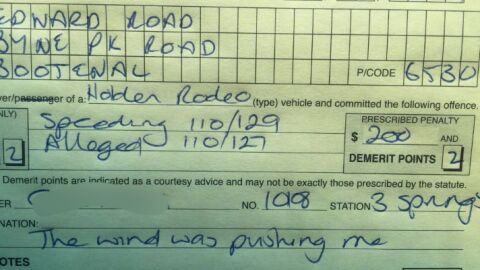 EDWARD ROAD
BYNE PK ROAD
BOOTENAL P/CODE 6530
ver/passenger of a: Holden Rodeo (type) vehicle and committed the following offence.
NLY) Speeding 110/129 PRESCRIBED PENALTY
2 Alleged 110/127 $ 200 AND
DEMERIT POINTS 2
Demerit points are indicated as a courtesy advice and may not be exactly those prescribed by the statute.
ER NO. 1018 STATION 3 springs
NATION:
The wind was pushing me
NOTES